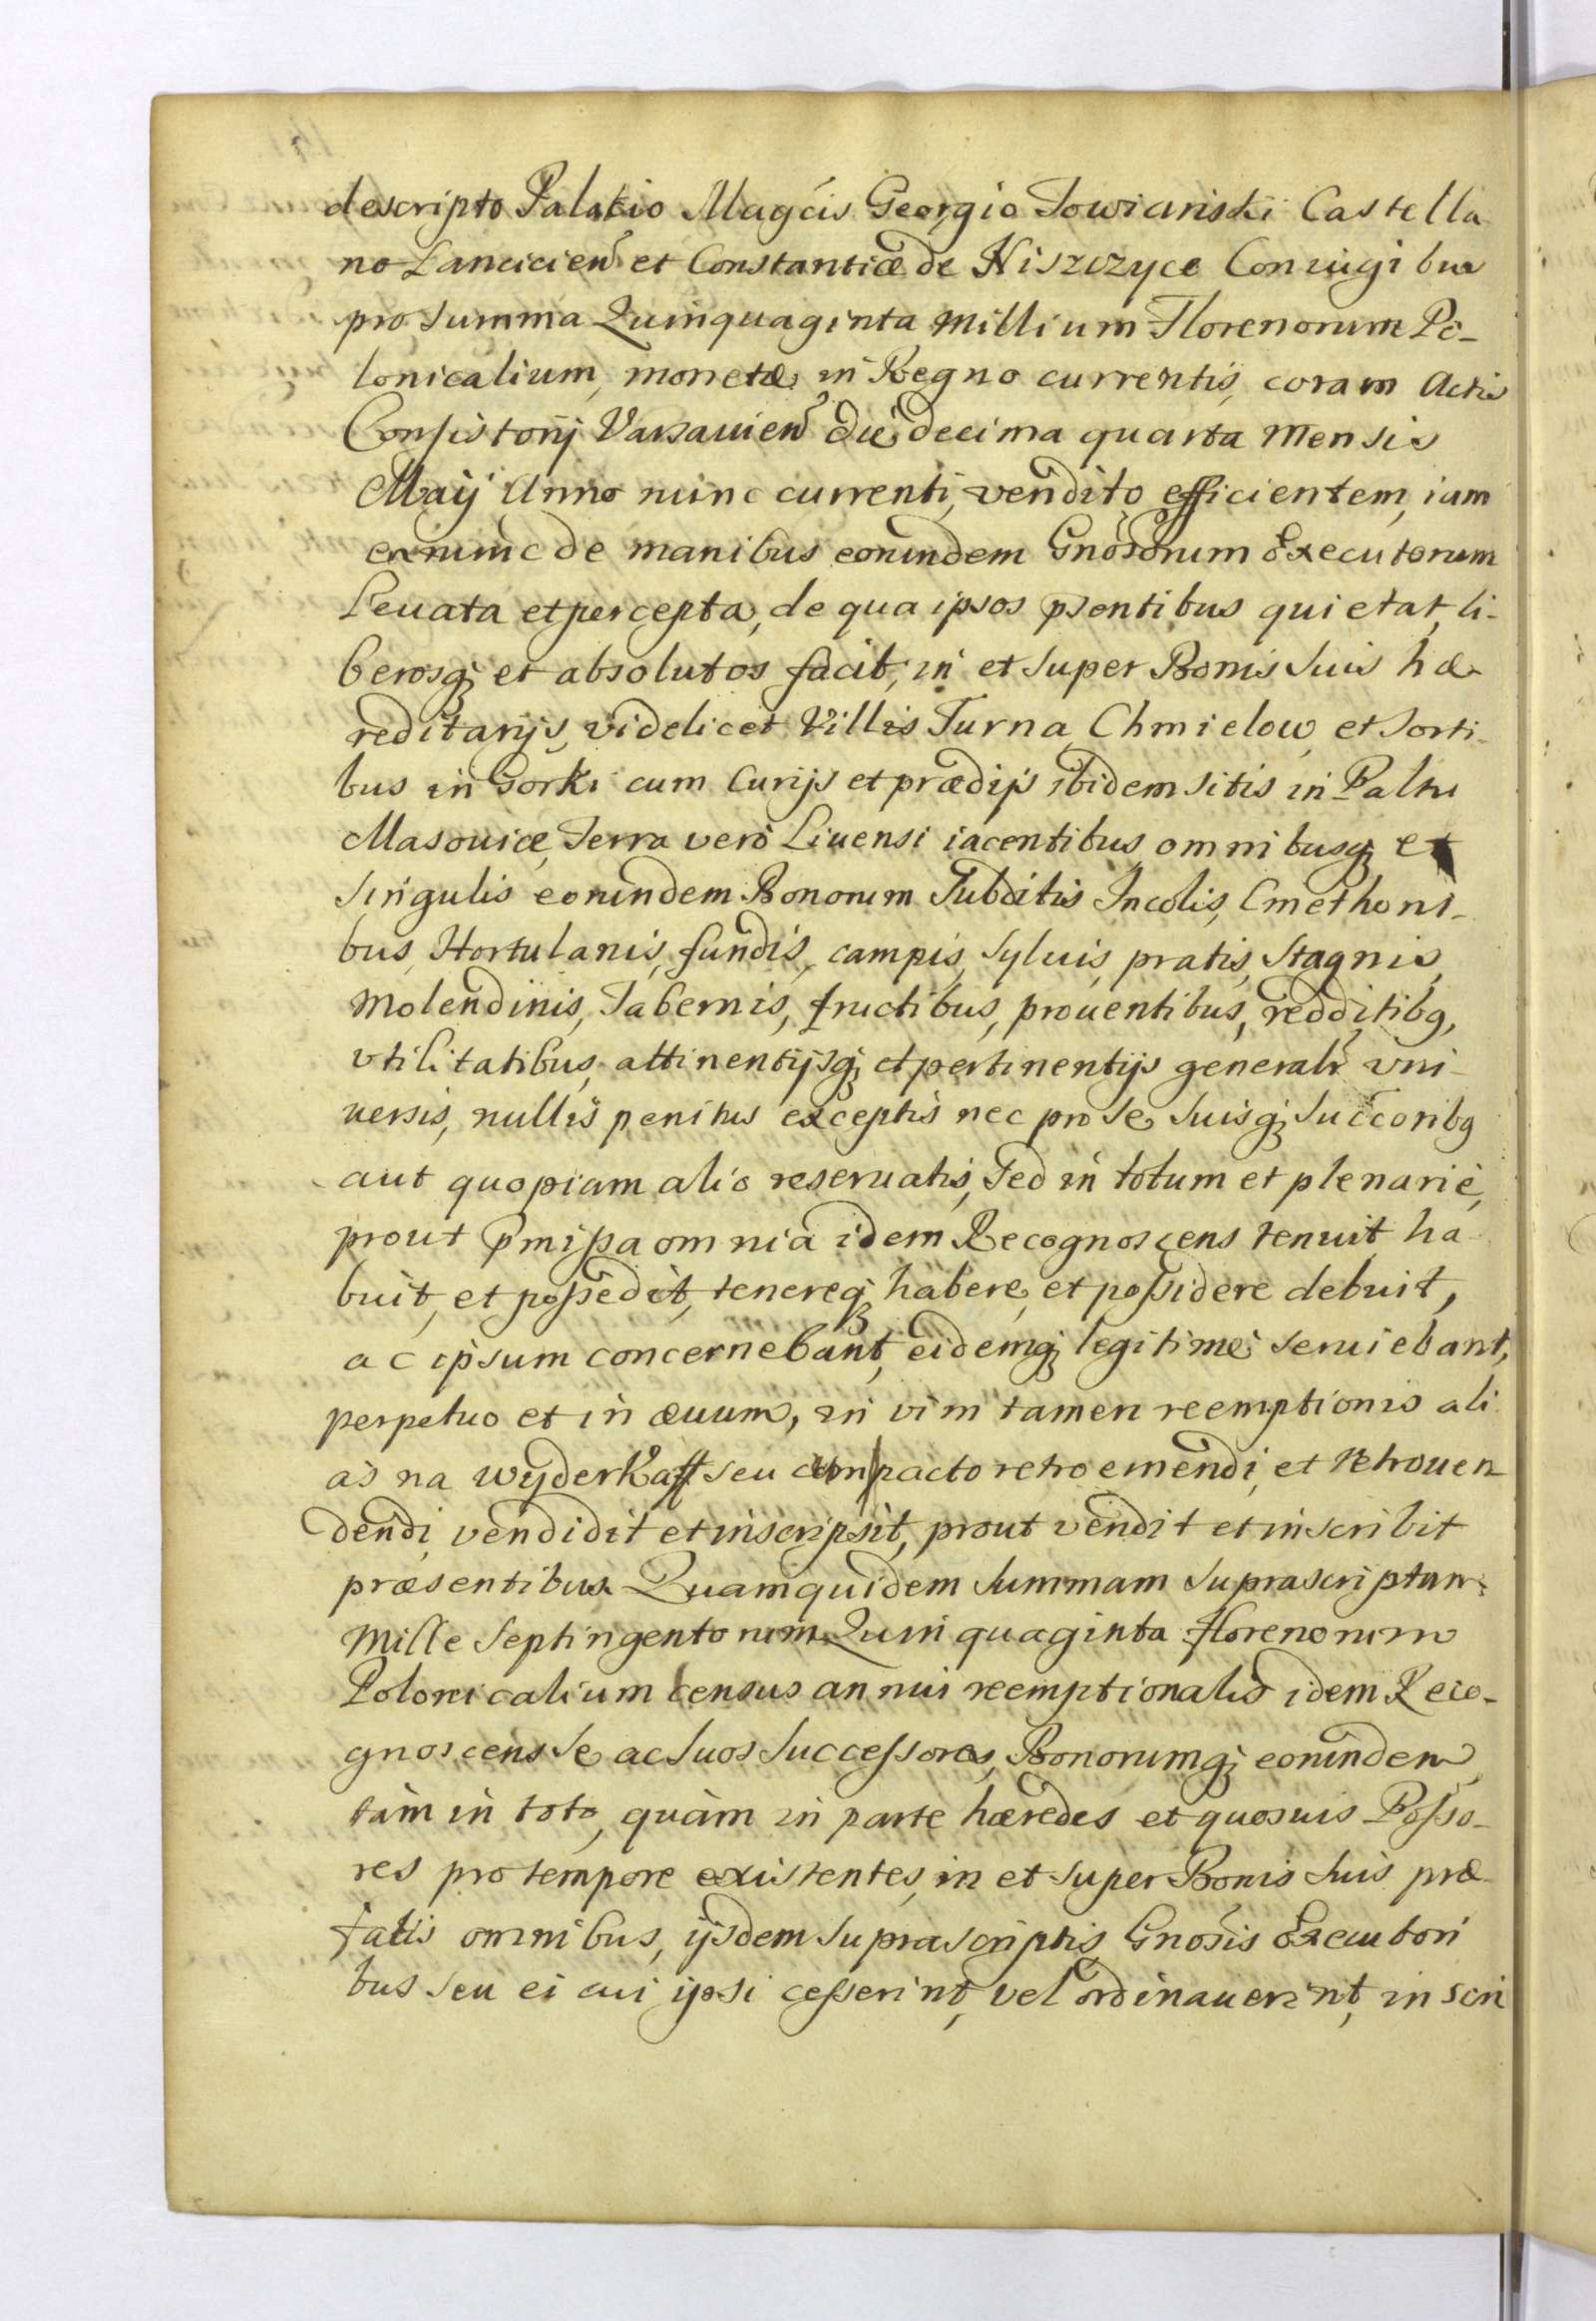 descripto Palatio Magcis Georgio Towianski Castella
no Lancicien et Constantiæ de Niszczyce Coniugibus
pro summa Quinquaginta Millium Florenorum Po-
lonicalium, monetæ in Regno currentis, coram Actis
Consistorij Varsauien die decima quarta Mensis
Maij Anno nunc currenti, vendito efficientem, iam
ex nunc de manibus eorundem Gnosorum Executorum
Leuata et percepta, de qua ipsos psentibus quietat, li-
berosq et absolutos facit, in et super Bonis suis hæ-
reditarijs, videlicet Villis Turna, Chmielow, et Sorti-
bus in Gorki cum Curijs et prædijs ibidem sitis in Paltu
Masouiæ, Terra verò Liuensi iacentibus, omnibusq et
singulis eorundem Bonorum Subditis Incolis, Cmethoni-
bus, Hortulanis, fundis, campis, syluis, pratis, Stagnis,
Molendinis, Tabernis, fructibus, prouentibus, redditibq,
vtilitatibus, attinentijsq et pertinentijs generalr vni-
uersis, nullis penitus exceptis nec pro se suisq succoribq
aut quopiam alio reseruatis, Sed in totum et plenariè,
prout pmissa omnia idem Recognoscens tenuit, ha-
buit, et possedit, tenereq habere, et possidere debuit,
ac ipsum concernebant, eidemq legitimè seruiebant,
perpetuo et in æuum, in vim tamen reemptionis ali-
as na wyderkaff seu cum pacto retroemendi, et retrouen
dendi vendidit et inscripsit, prout vendit et inscribit
præsentibus. Quamquidem summam suprascriptam
Mille Septingentorum Quinquaginta florenorum
Polonicalium census annui reemptionalis idem Reco-
gnoscens se ac suos Successores, Bonorumq eorundem
tàm in toto, quàm in parte hæredes et quosuis Posso-
res pro tempore existentes, in et super Bonis suis præ-
fatis omnibus, ijsdem suprascriptis Gnosis Executori
bus seu ei cui ipsi cesserint, vel ordinauerint, inscri